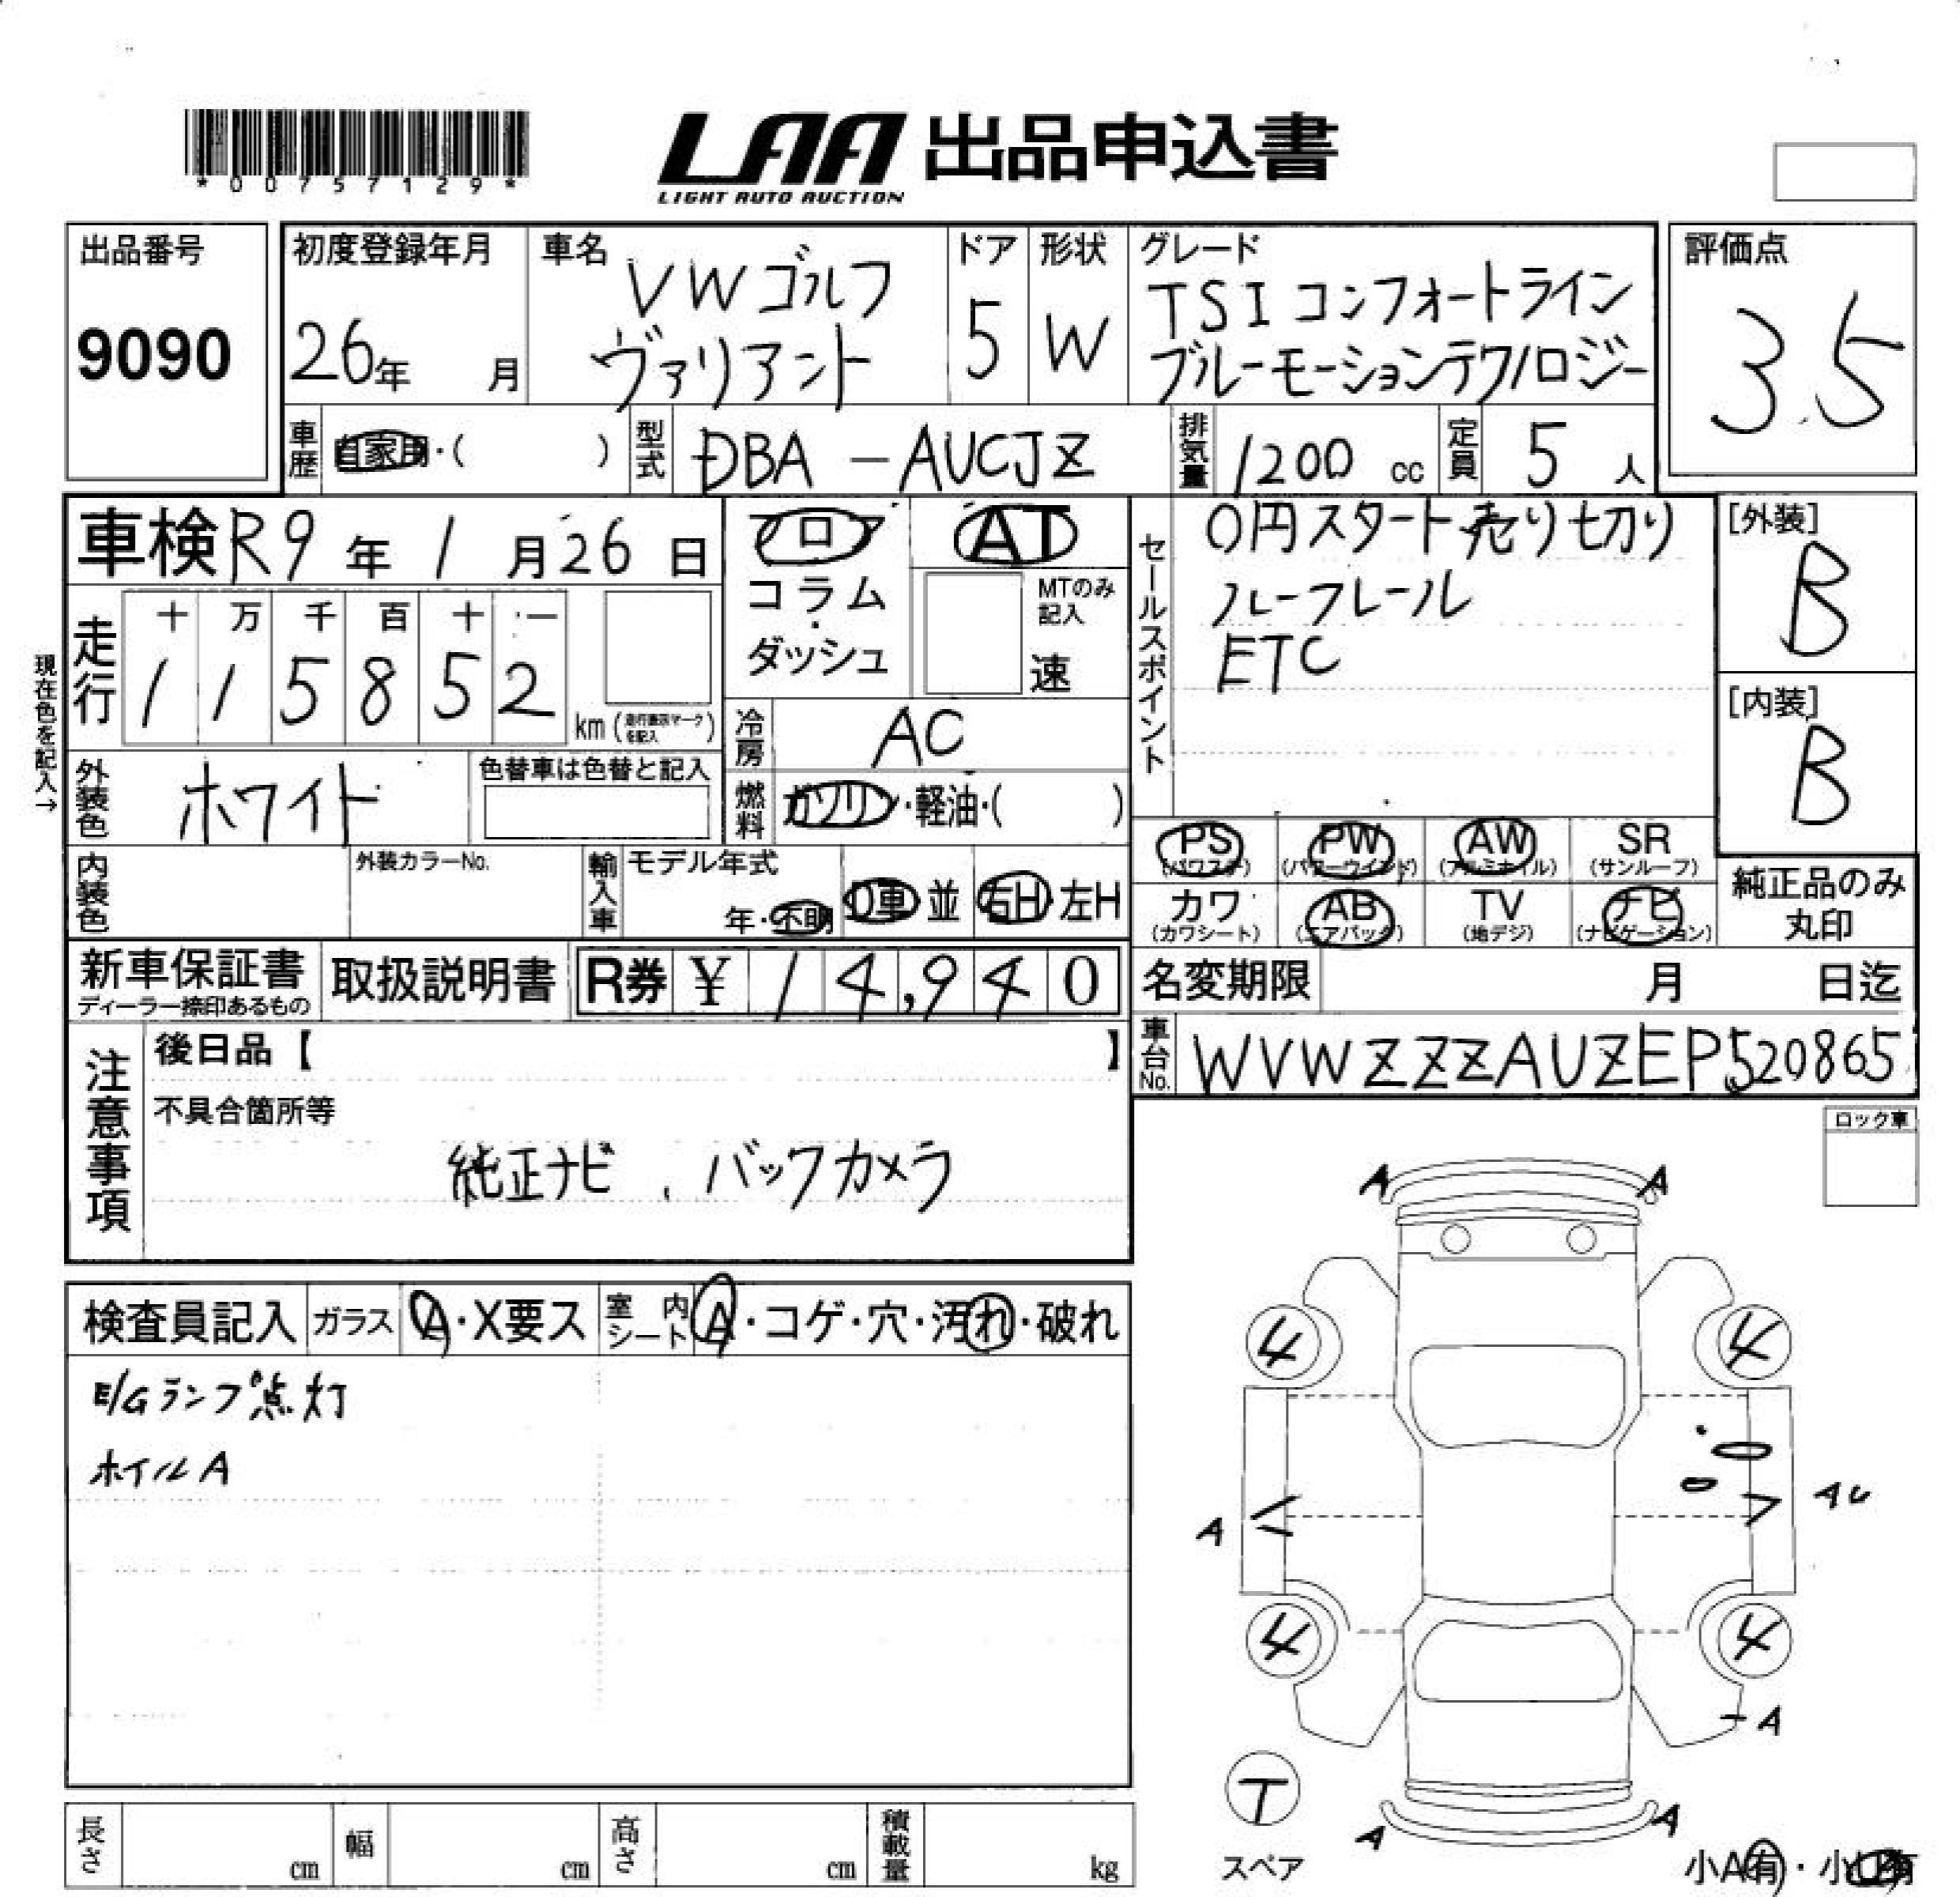 *00757129*
LAA 出品申込書
LIGHT AUTO AUCTION
出品番号
9090
初度登録年月
26年 月
車名
VWゴルフ
ヴァリアント
ドア
5
形状
W
グレード
TSIコンフォートライン
ブルーモーションテクノロジー
評価点
3.5
車歴 自家用・( )
型式 DBA-AUCJZ
排気量 1200 cc
定員 5 人
車検 R9 年 1 月 26 日
フロア
コラム・
ダッシュ
AT
MTのみ
記入
速
セールスポイント
0円スタート売り切り
ルーフレール
ETC
[外装]
B
[内装]
B
現在色を記入→
走行
十 万 千 百 十 一
1 1 5 8 5 2
km (走行表示マークを記入)
冷房 AC
外装色 ホワイト
色替車は色替と記入
燃料 ガソリン・軽油・( )
PS
(パワステ)
PW
(パワーウインド)
AW
(アルミホイル)
SR
(サンルーフ)
内装色
外装カラーNo.
輸入車
モデル年式
年・不明
D車 並
右H 左H
カワ
(カワシート)
AB
(エアバック)
TV
(地デジ)
ナビ
(ナビゲーション)
純正品のみ
丸印
新車保証書
ディーラー捺印あるもの
取扱説明書
R券 ¥ 14,940
名変期限 月 日迄
車台No. WVWZZZAUZEP520865
注意事項
後日品【 】
不具合箇所等
純正ナビ、バックカメラ
ロック車
検査員記入
ガラス A・X要ス
室内シート A・コゲ・穴・汚れ・破れ
E/Gランプ点灯
ホイルA
A A
4 4
A AU
4 4
A
T
スペア
A A
小A有・小U有
長さ cm
幅 cm
高さ cm
積載量 kg